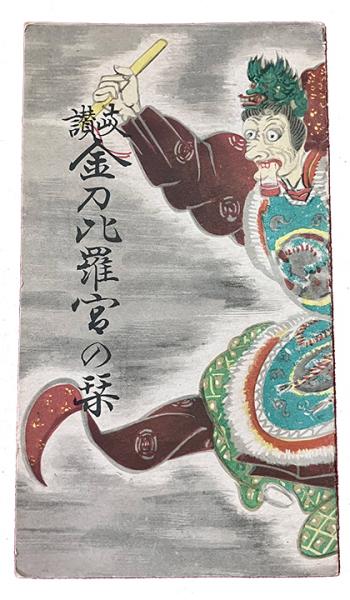 讃岐
金刀比羅宮の栞